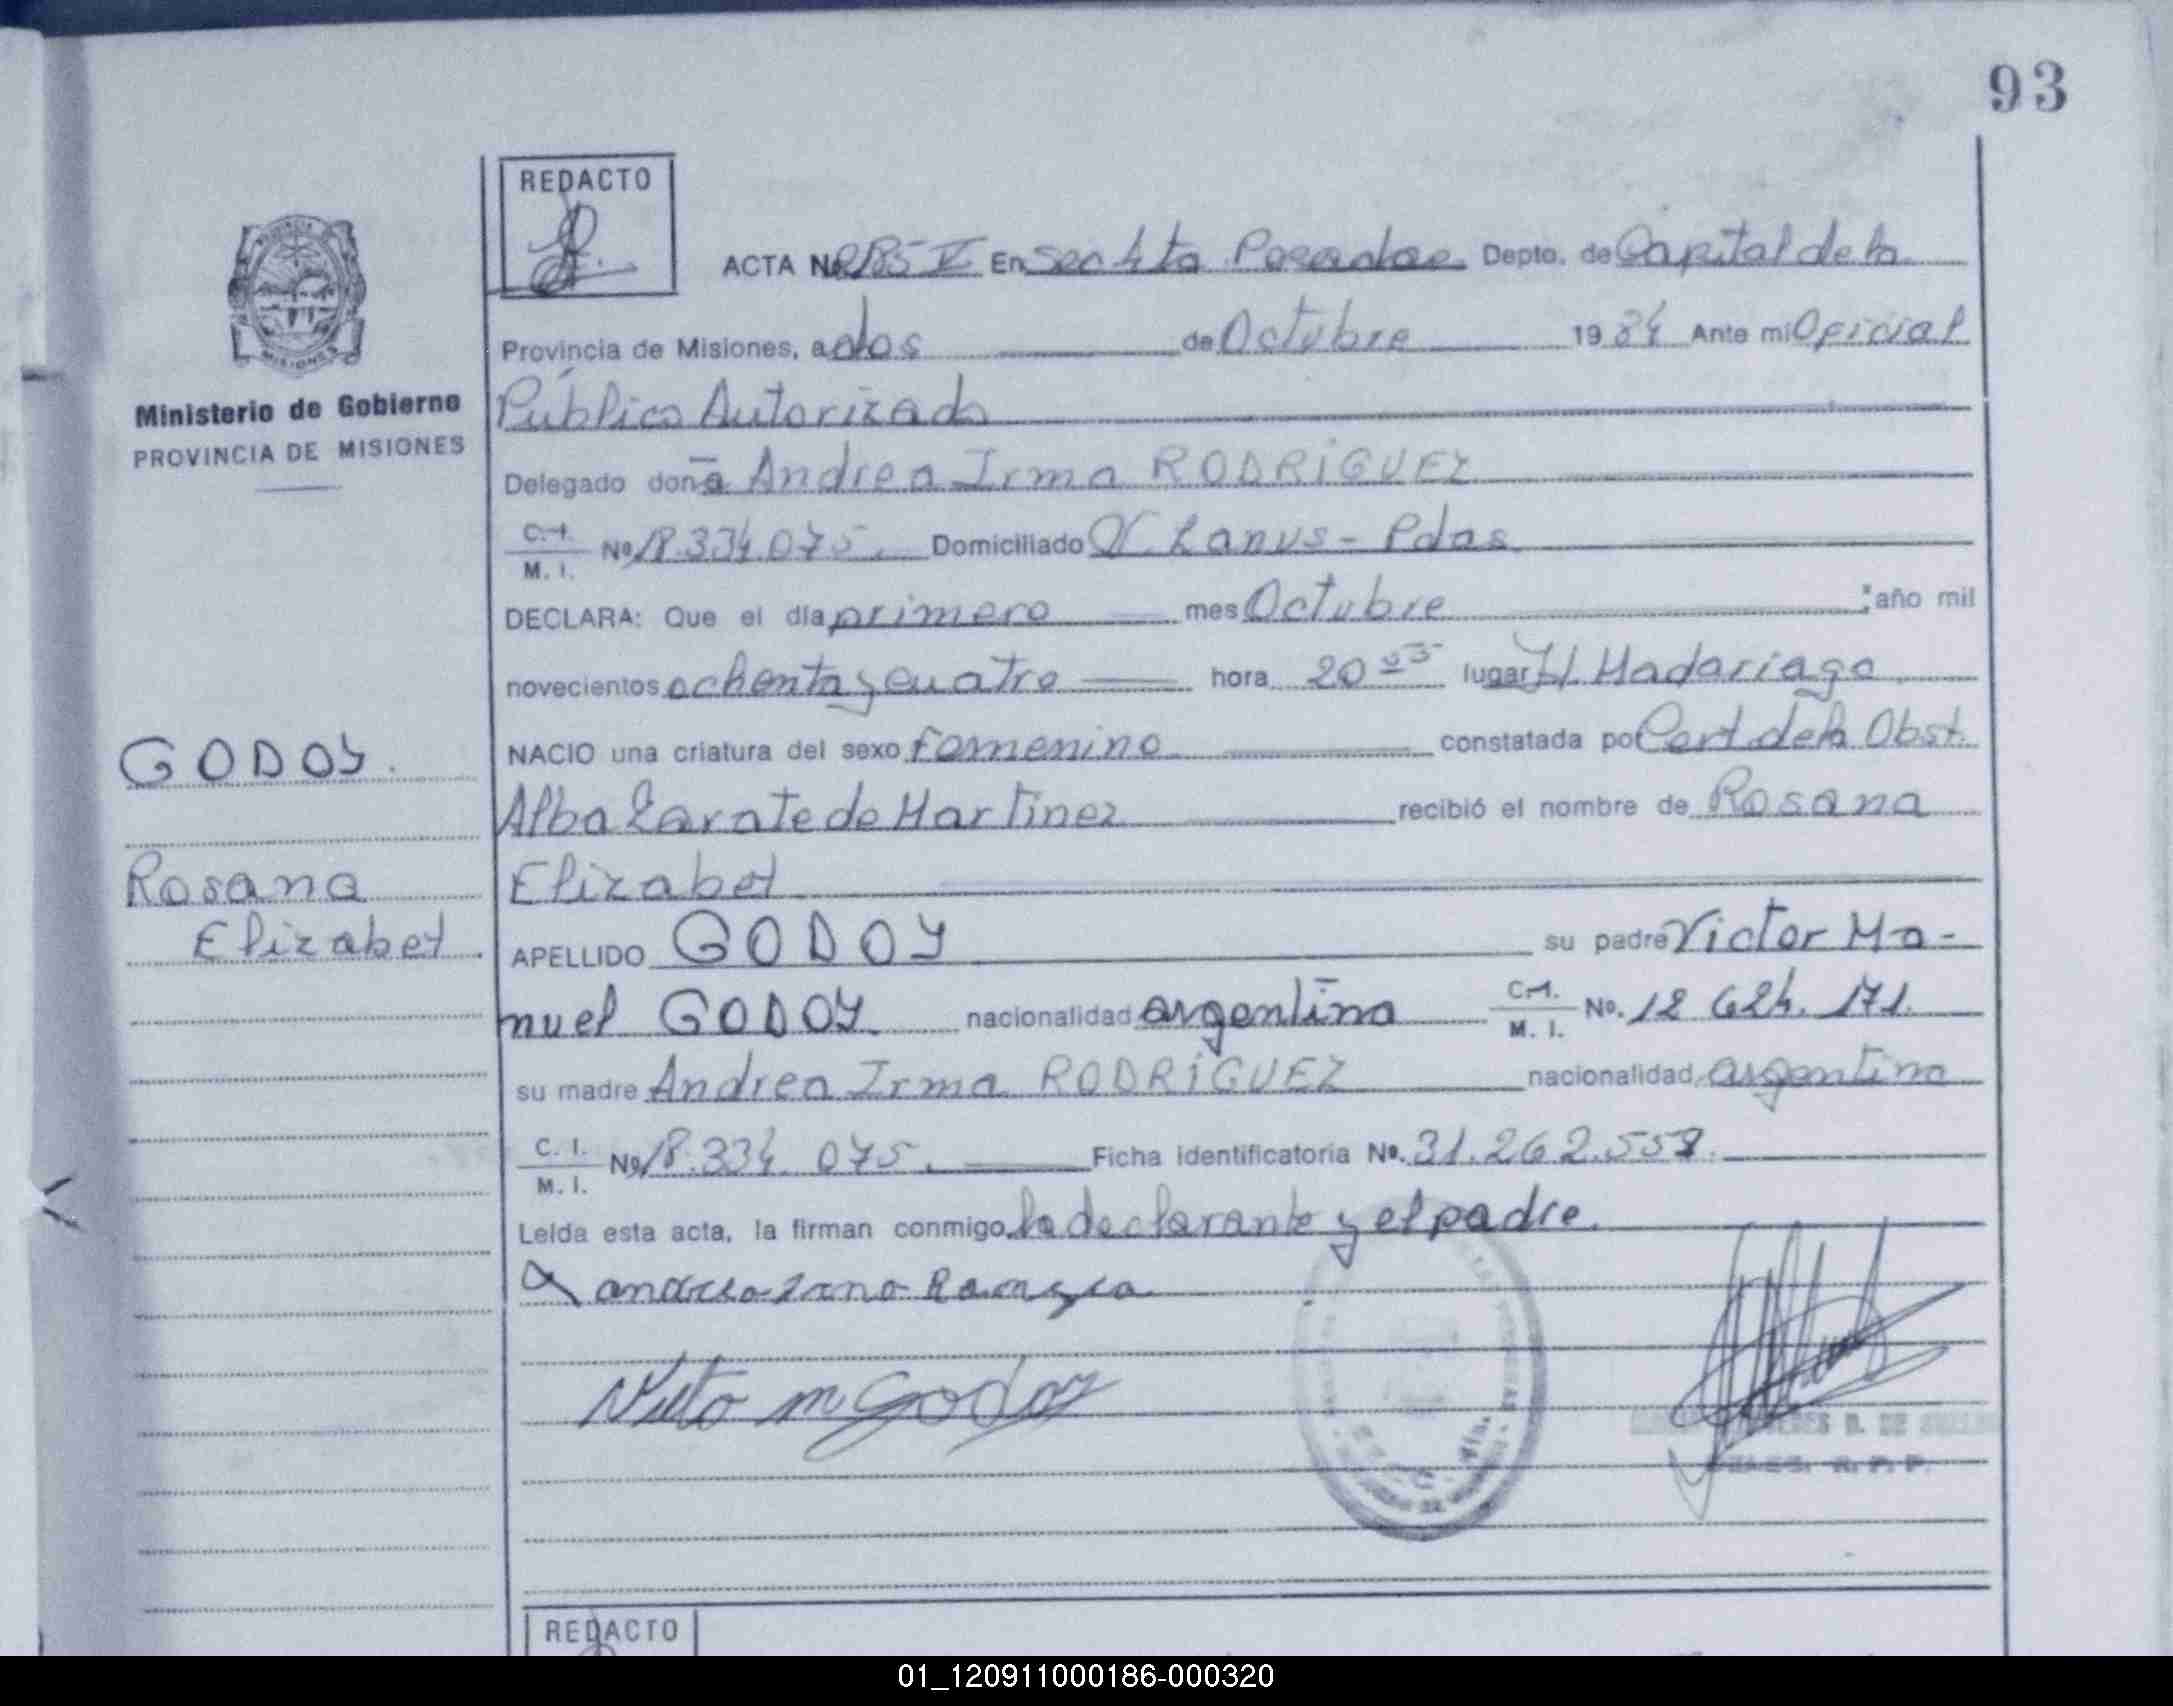 93
REDACTO
ACTA Nº En Secc 4ta Posadas Depto. de Capital de la
Provincia de Misiones, a dos de Octubre 1984 Ante mi Oficial
Público Autorizado
Ministerio de Gobierno
PROVINCIA DE MISIONES
Delegado doña Andrea Irma RODRÍGUEZ
C.I. M. I. Nº 18.334.075. Domiciliado Lanus - Pdas
DECLARA: Que el día primero mes Octubre año mil
novecientos ochenta y cuatro hora 20 05 lugar H. Madariaga
NACIO una criatura del sexo femenino constatada por Cert de la Obst.
Alba Zarate de Martinez recibió el nombre de Rosana
Elizabet
GODOY.
Rosana
Elizabet.
APELLIDO GODOY su padre Victor Ma-
nuel GODOY. nacionalidad argentina C.I. M. I. Nº. 12 624. 171.
su madre Andrea Irma RODRÍGUEZ nacionalidad argentina
C. I. M. I. Nº 18.334.075. Ficha identificatoria Nº. 31.262.558.
Leída esta acta, la firman conmigo la declarante y el padre.
Victo m Godoy
REDACTO
01_120911000186-000320